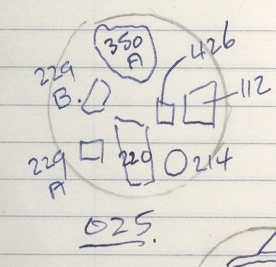 350
A
426
229
B.
112
229
A
220
214
025.